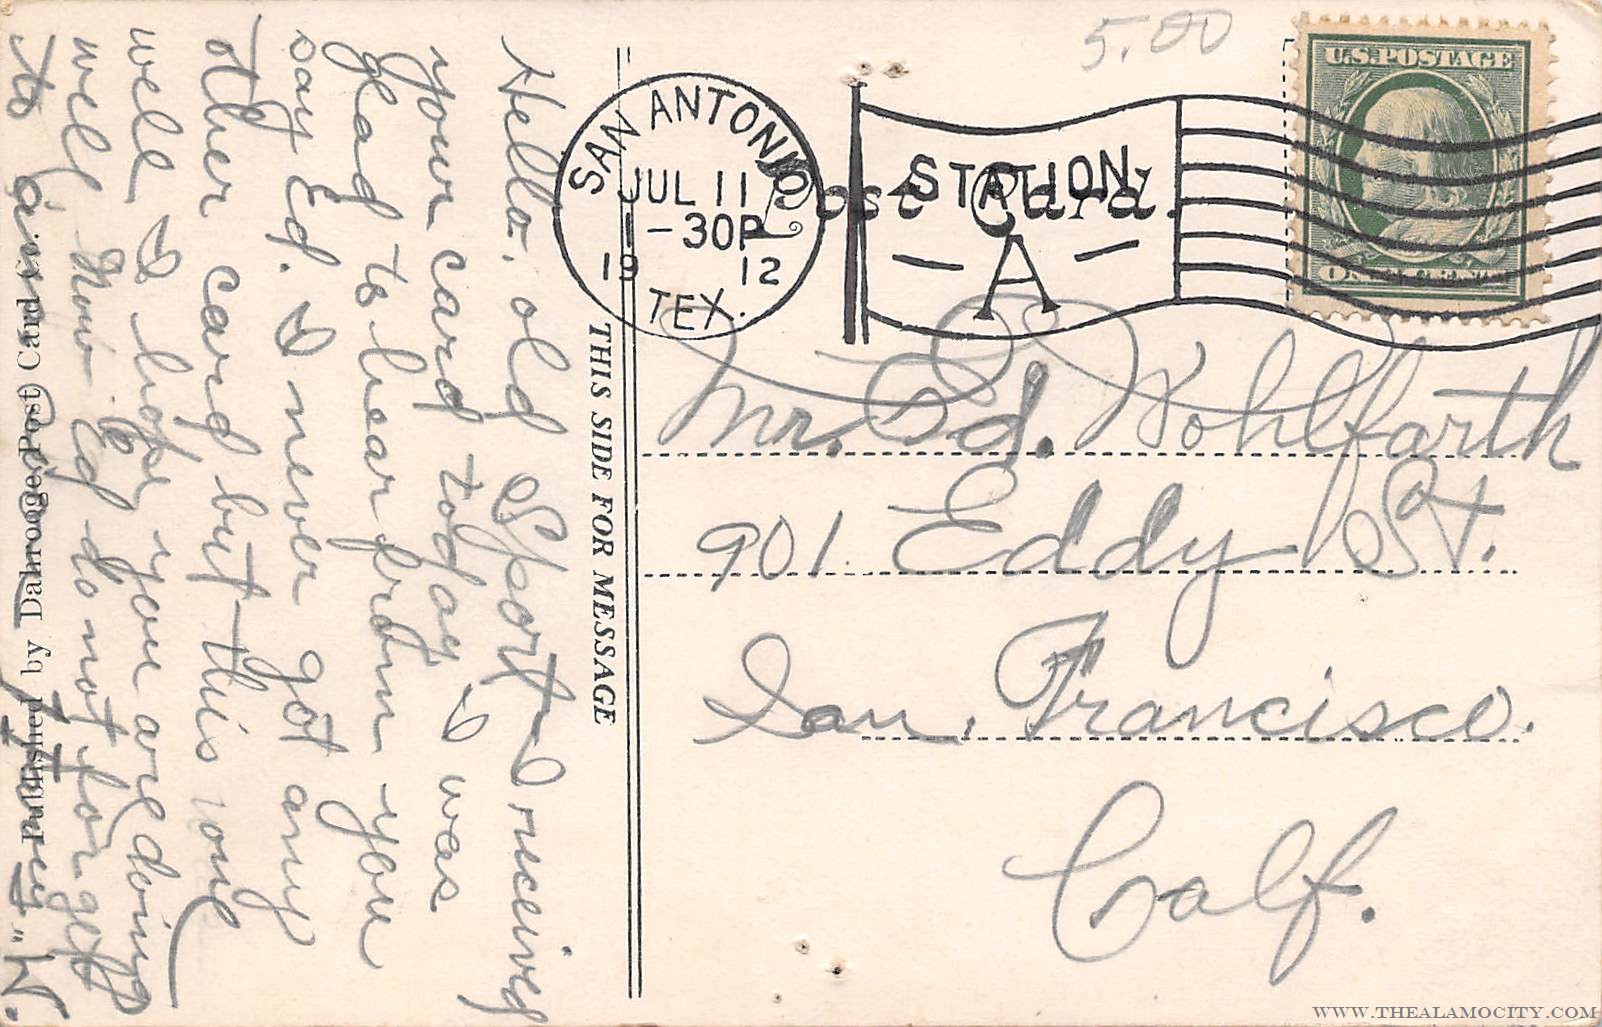 5.00
U.S. POSTAGE
SAN ANTONIO
JUL 11
-30P
19 12
TEX.
STATION
A
Post Card.
THIS SIDE FOR MESSAGE
Hello. old Sport I received
your card today I was
glad to hear from you
say Ed. I never got any
other card but this one
well I hope you are doing
well Now Ed do not forget
to ans.
W.
Published by Dahrooge Post Card Co.
Mr. Ed. Wohlfarth
901 Eddy St.
San. Francisco.
Calf.
WWW.THEALAMOCITY.COM